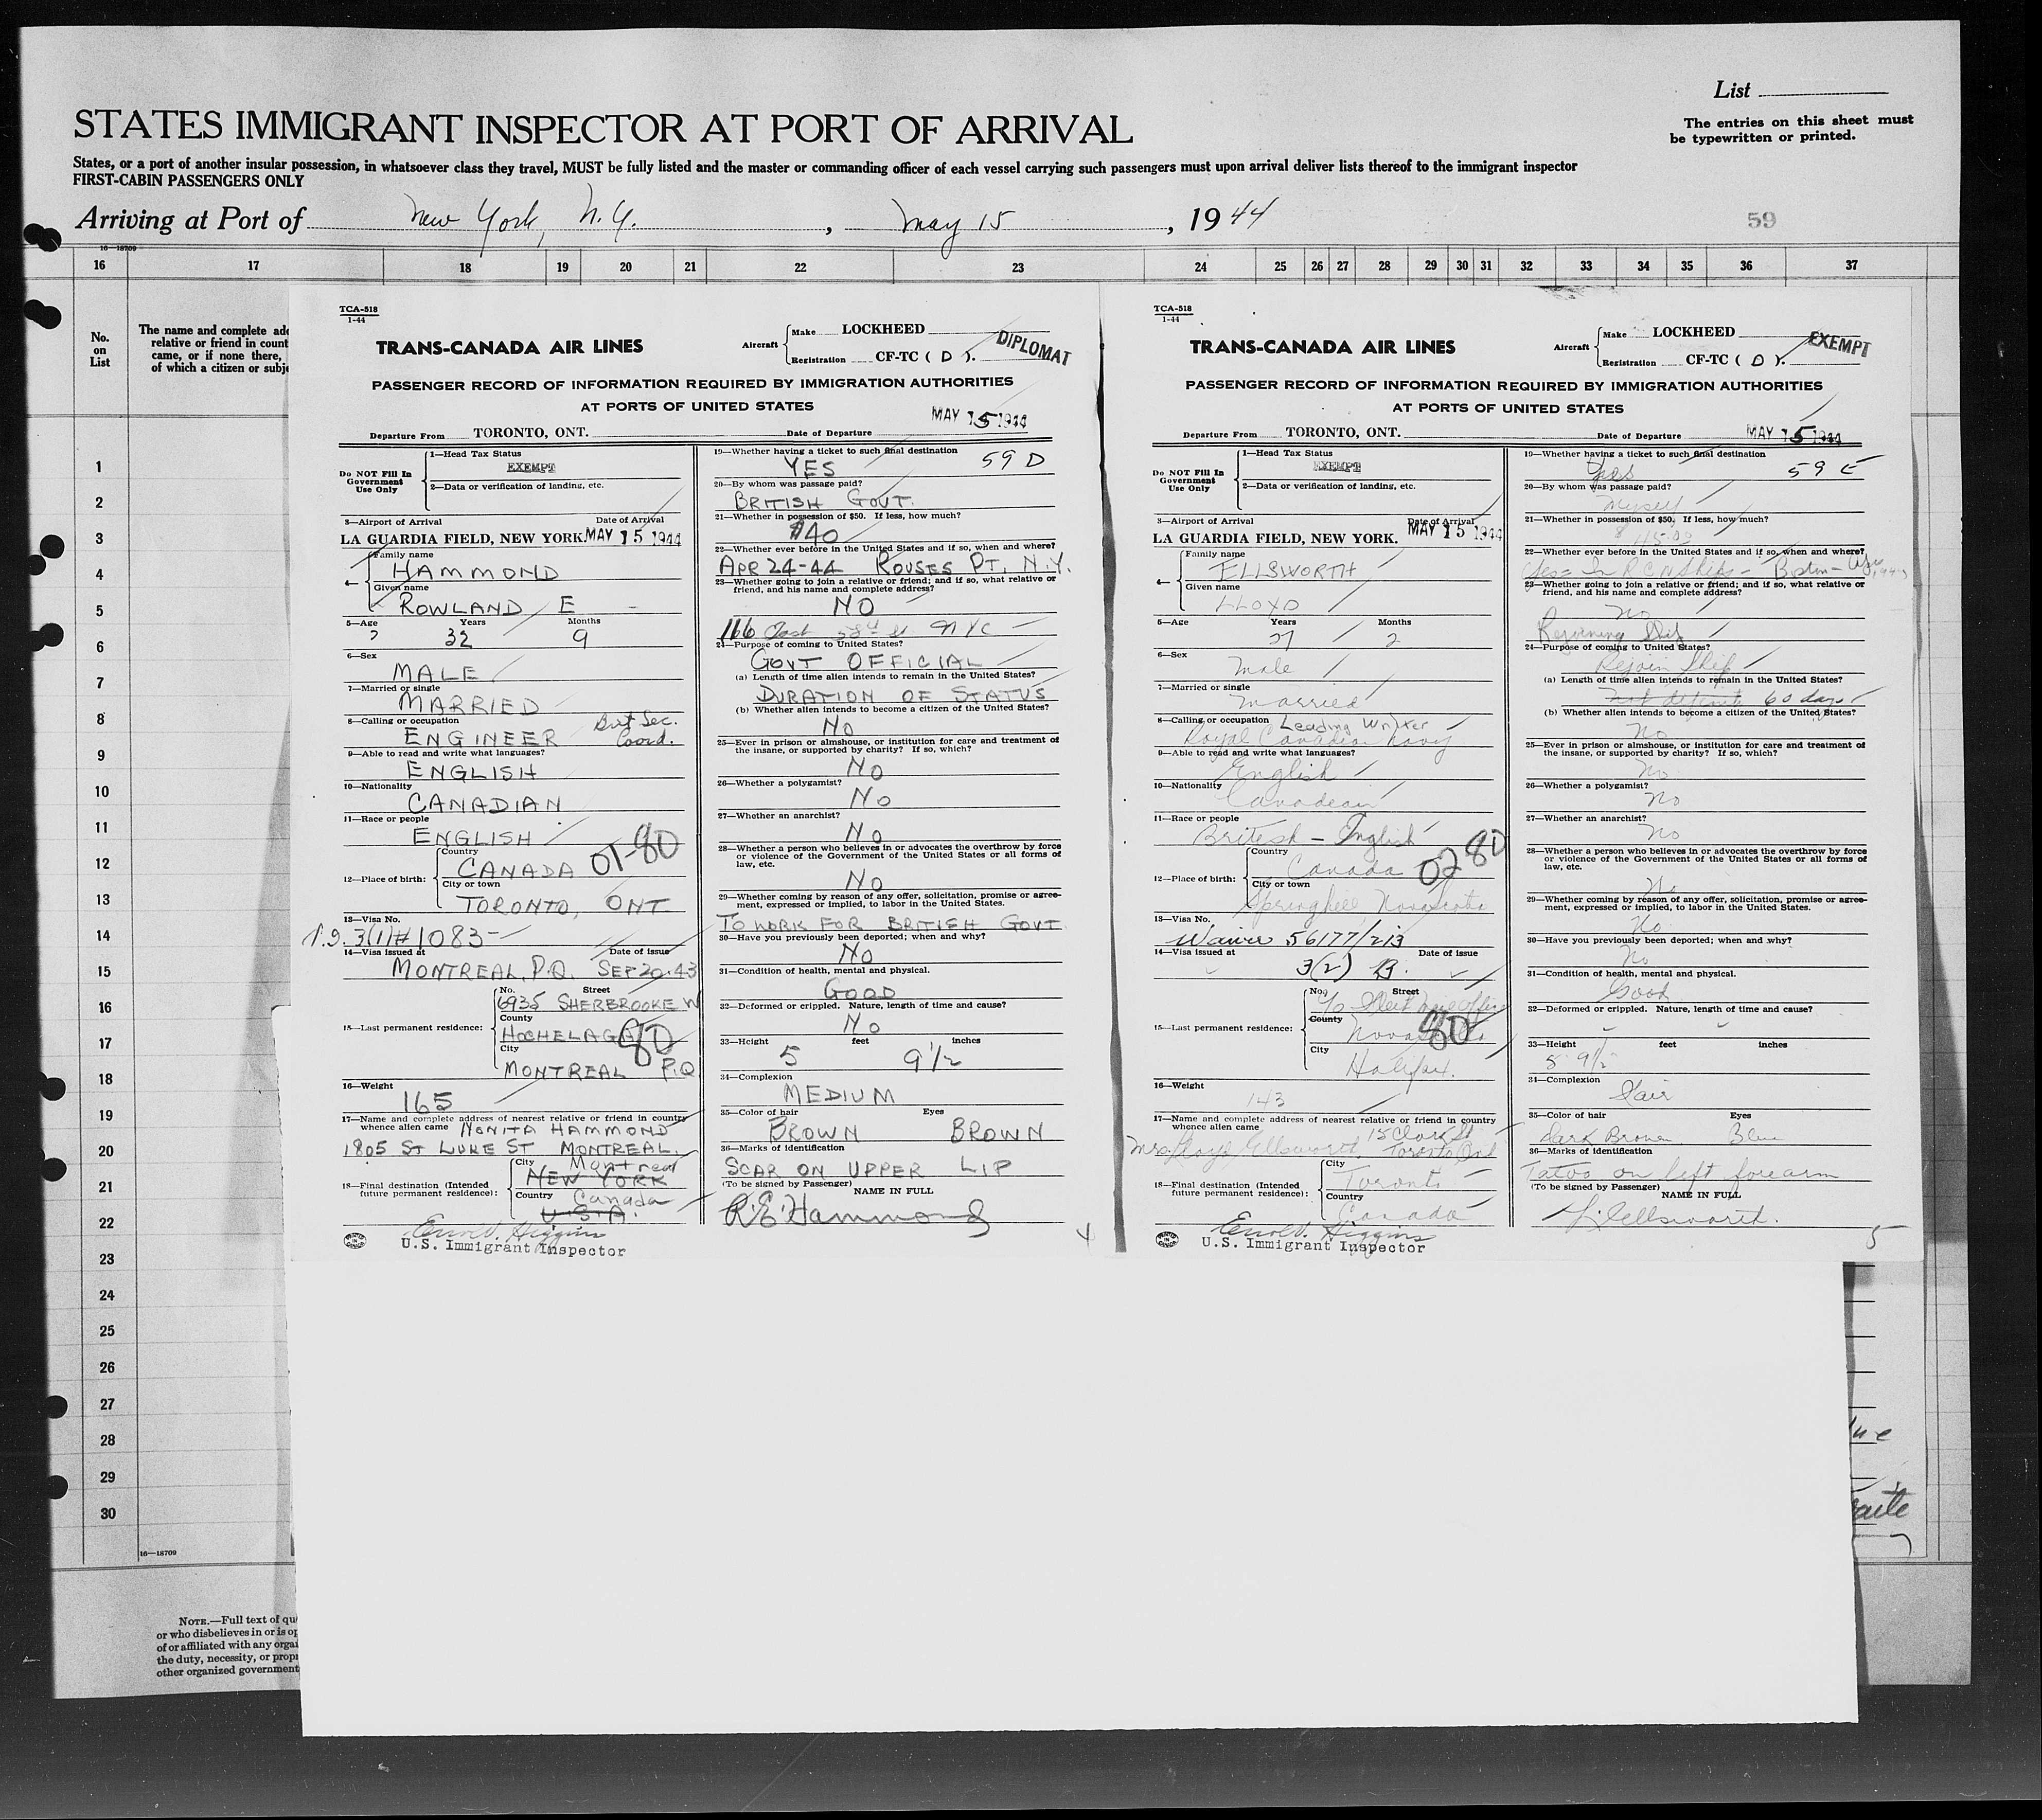 List
The entries on this sheet must
be typewritten or printed.
STATES IMMIGRANT INSPECTOR AT PORT OF ARRIVAL
States, or a port of another insular possession, in whatsoever class they travel, MUST be fully listed and the master or commanding officer of each vessel carrying such passengers must upon arrival deliver lists thereof to the immigrant inspector
FIRST-CABIN PASSENGERS ONLY
Arriving at Port of New York, N.Y. , May 15 , 1944
59
16—18709
16 17 18 19 20 21 22 23 24 25 26 27 28 29 30 31 32 33 34 35 36 37
No.
on
List
The name and complete add
relative or friend in count
came, or if none there,
of which a citizen or subje
1
2
3
4
5
6
7
8
9
10
11
12
13
14
15
16
17
18
19
20
21
22
23
24
25
26
27
28
29
30
16—18709
NOTE.—Full text of qu
or who disbelieves in or is op
of or affiliated with any organ
the duty, necessity, or propr
other organized government
TCA-518
1-44
TRANS-CANADA AIR LINES
Aircraft
Make LOCKHEED
Registration CF-TC ( D ).
DIPLOMAT
PASSENGER RECORD OF INFORMATION REQUIRED BY IMMIGRATION AUTHORITIES
AT PORTS OF UNITED STATES
Departure From TORONTO, ONT. Date of Departure MAY 15 1944
Do NOT Fill In
Government
Use Only
1—Head Tax Status
EXEMPT
2—Data or verification of landing, etc.
3—Airport of Arrival Date of Arrival
LA GUARDIA FIELD, NEW YORK. MAY 15 1944
4—
Family name
HAMMOND
Given name
ROWLAND E
5—Age Years Months
32 9
6—Sex
MALE
7—Married or single
MARRIED
8—Calling or occupation
ENGINEER
Coord.
9—Able to read and write what languages?
ENGLISH
10—Nationality
CANADIAN
11—Race or people
ENGLISH
12—Place of birth:
Country
CANADA 01-80
City or town
TORONTO, ONT
13—Visa No.
3(1) # 1083
14—Visa issued at Date of issue
MONTREAL, P.Q. SEP 20-43
15—Last permanent residence:
No. Street
6935 SHERBROOKE W
County
HOCHELAGA 80
City
MONTREAL P.Q
16—Weight
165
17—Name and complete address of nearest relative or friend in country
whence alien came NONITA HAMMOND
1805 ST LUKE ST MONTREAL.
18—Final destination (Intended
future permanent residence):
City Montreal
NEW YORK
Country Canada
U.S.A.
Errol V. Higgins
U.S. Immigrant Inspector
19—Whether having a ticket to such final destination
YES 59 D
20—By whom was passage paid?
BRITISH GOVT.
21—Whether in possession of $50. If less, how much?
$40
22—Whether ever before in the United States and if so, when and where?
APR 24-44 ROUSES PT. N.Y.
23—Whether going to join a relative or friend; and if so, what relative or
friend, and his name and complete address?
NO
166 NYC
24—Purpose of coming to United States?
GOVT OFFICIAL
(a) Length of time alien intends to remain in the United States?
DURATION OF STATUS
(b) Whether alien intends to become a citizen of the United States?
NO
25—Ever in prison or almshouse, or institution for care and treatment of
the insane, or supported by charity? If so, which?
NO
26—Whether a polygamist?
NO
27—Whether an anarchist?
NO
28—Whether a person who believes in or advocates the overthrow by force
or violence of the Government of the United States or all forms of
law, etc.
NO
29—Whether coming by reason of any offer, solicitation, promise or agree-
ment, expressed or implied, to labor in the United States.
TO WORK FOR BRITISH GOVT.
30—Have you previously been deported; when and why?
NO
31—Condition of health, mental and physical.
GOOD
32—Deformed or crippled. Nature, length of time and cause?
NO
33—Height feet inches
5 9½
34—Complexion
MEDIUM
35—Color of hair Eyes
BROWN BROWN
36—Marks of identification
SCAR ON UPPER LIP
(To be signed by Passenger) NAME IN FULL
R.E. Hammond
4
TCA-518
1-44
TRANS-CANADA AIR LINES
Aircraft
Make LOCKHEED
Registration CF-TC ( D ).
EXEMPT
PASSENGER RECORD OF INFORMATION REQUIRED BY IMMIGRATION AUTHORITIES
AT PORTS OF UNITED STATES
Departure From TORONTO, ONT. Date of Departure MAY 15 1944
Do NOT Fill In
Government
Use Only
1—Head Tax Status
EXEMPT
2—Data or verification of landing, etc.
3—Airport of Arrival Date of Arrival
LA GUARDIA FIELD, NEW YORK. MAY 15 1944
4—
Family name
ELLSWORTH
Given name
LLOYD
5—Age Years Months
27 2
6—Sex
Male
7—Married or single
Married
8—Calling or occupation Leading Writer
Royal Canadian Navy
9—Able to read and write what languages?
English
10—Nationality
Canadian
11—Race or people
British – English
12—Place of birth:
Country
Canada 02 80
City or town
Springhill Nova Scotia
13—Visa No.
Waiver 56177/213
14—Visa issued at Date of issue
3(2) B.
15—Last permanent residence:
No. Street
c/o Fleet Mail Office
County
Nova Scotia 80
City
Halifax.
16—Weight
143
17—Name and complete address of nearest relative or friend in country
whence alien came 15 Clark St
Mrs Lloyd Ellsworth, Toronto Ont
18—Final destination (Intended
future permanent residence):
City
Toronto
Country
Canada
Errol V. Higgins
U.S. Immigrant Inspector
19—Whether having a ticket to such final destination
Yes 59 E
20—By whom was passage paid?
Myself
21—Whether in possession of $50. If less, how much?
22—Whether ever before in the United States and if so, when and where?
Yes – In RCN Ships – Boston –
23—Whether going to join a relative or friend; and if so, what relative or
friend, and his name and complete address?
No
Rejoining Ship
24—Purpose of coming to United States?
Rejoin Ship
(a) Length of time alien intends to remain in the United States?
Not definite 60 days
(b) Whether alien intends to become a citizen of the United States?
No
25—Ever in prison or almshouse, or institution for care and treatment of
the insane, or supported by charity? If so, which?
No
26—Whether a polygamist?
No
27—Whether an anarchist?
No
28—Whether a person who believes in or advocates the overthrow by force
or violence of the Government of the United States or all forms of
law, etc.
No
29—Whether coming by reason of any offer, solicitation, promise or agree-
ment, expressed or implied, to labor in the United States.
No
30—Have you previously been deported; when and why?
No
31—Condition of health, mental and physical.
Good
32—Deformed or crippled. Nature, length of time and cause?
33—Height feet inches
5 9½
34—Complexion
Fair
35—Color of hair Eyes
Dark Brown Blue
36—Marks of identification
Tatoo on left forearm
(To be signed by Passenger) NAME IN FULL
L. Ellsworth.
5